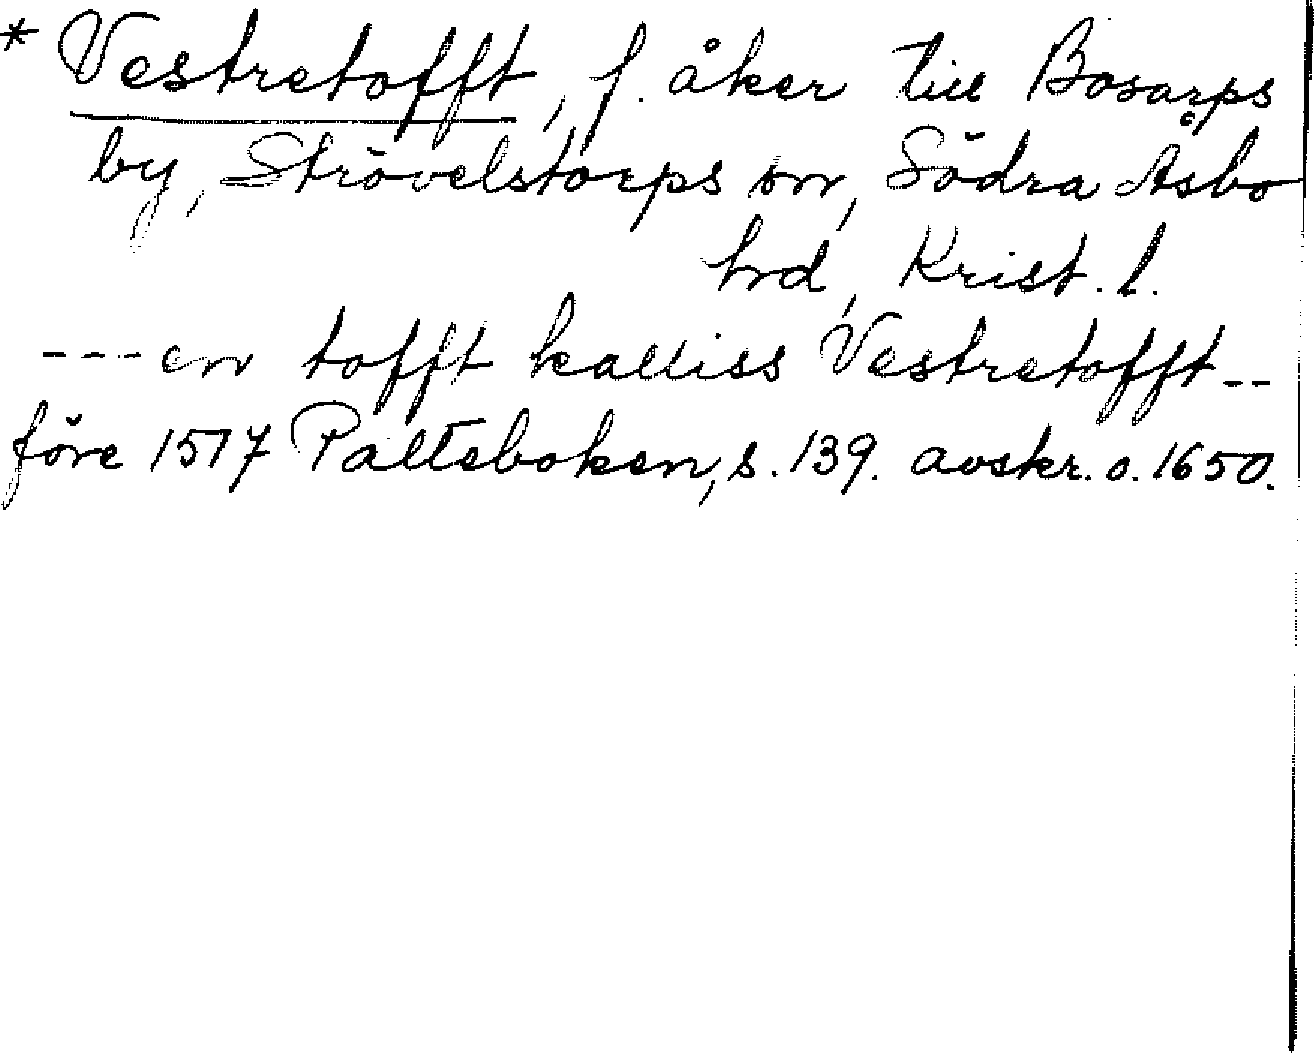 * Vestretofft, f. åker till Bosarps
by, Strövelstorps sn, Södra Åsbo
hd, Krist. l.
---en tofft kalliss Vestretofft--
före 1517 Palteboken, s. 139. avskr. o. 1650.